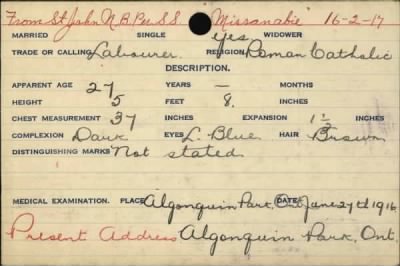 From St John N.B. Per S.S. Missanabie 16-2-17
MARRIED SINGLE yes WIDOWER
TRADE OR CALLING Labourer. RELIGION Roman Catholic
DESCRIPTION.
APPARENT AGE 27 YEARS — MONTHS
HEIGHT 5 FEET 8. INCHES
CHEST MEASUREMENT 37 INCHES EXPANSION 1 1/2 INCHES
COMPLEXION Dark EYES L. Blue. HAIR Brown
DISTINGUISHING MARKS Not stated.
MEDICAL EXAMINATION. PLACE Algonquin Park, Ont DATE June 27th 1916
Present Address Algonquin Park, Ont.